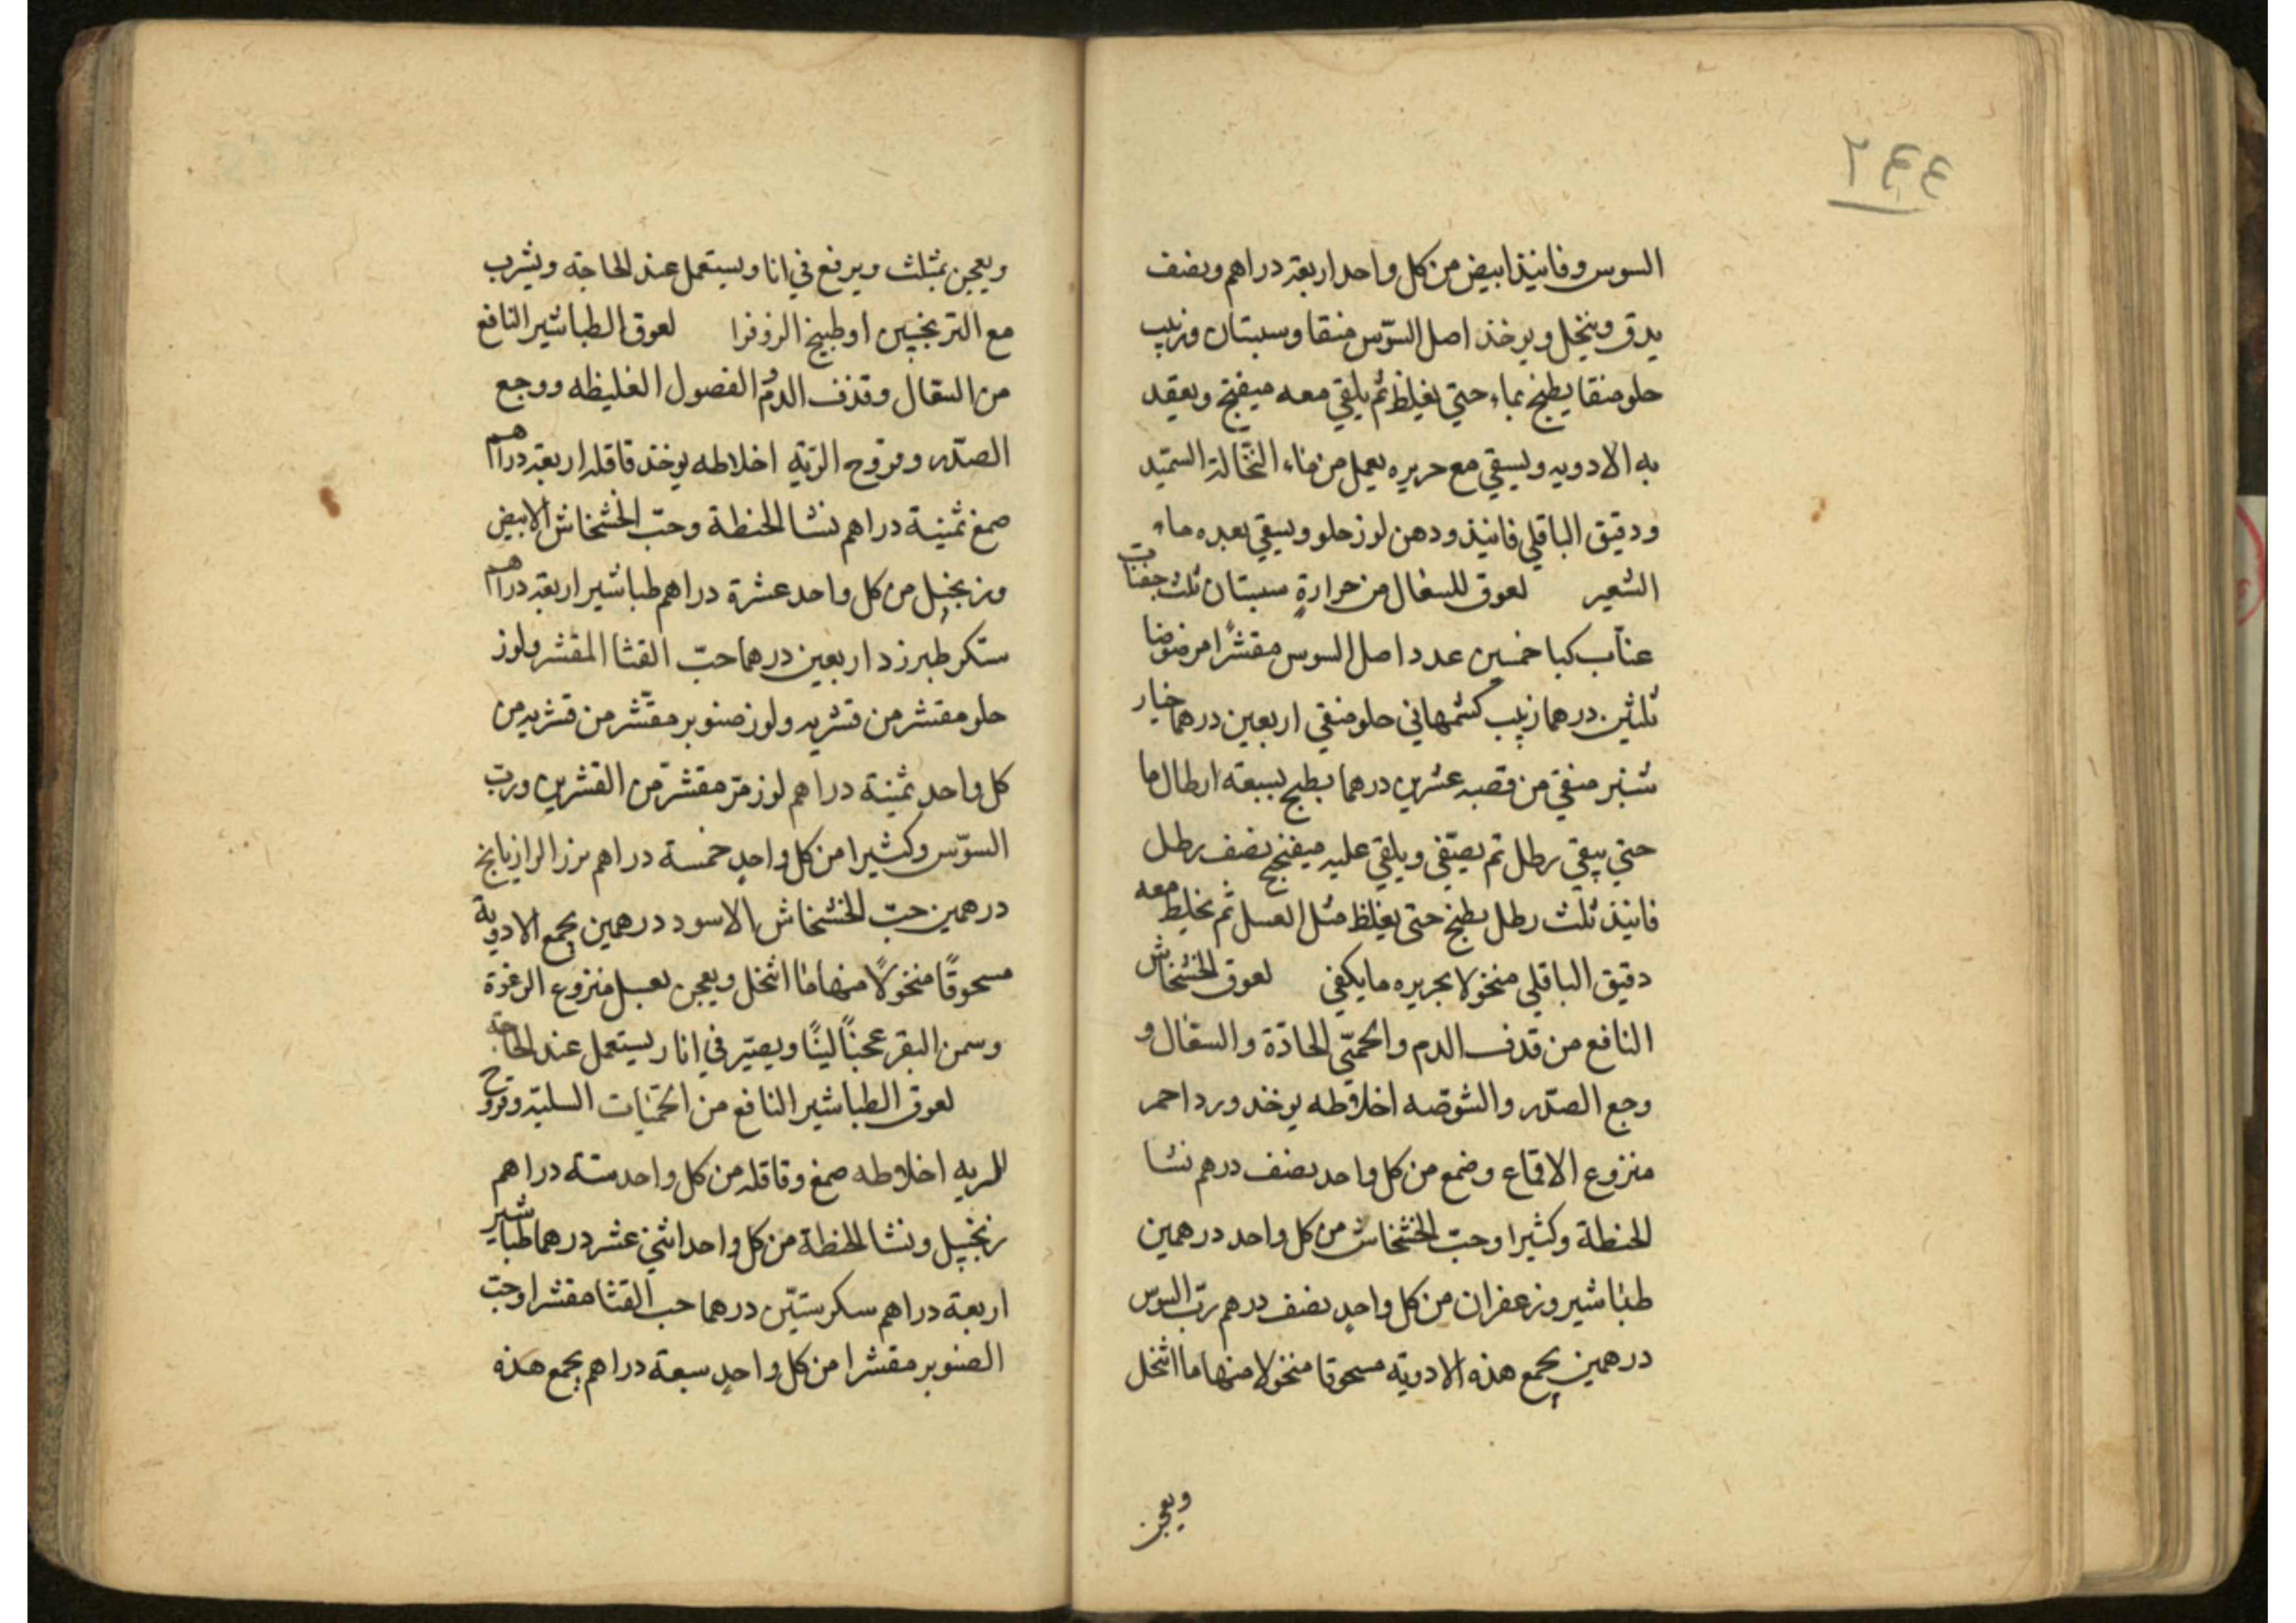 ٢٤٤
السوس وفانيذ ابيض من كل واحد اربعة دراهم ونصف
يدق وينخل ويوخذ اصل السوّس منقا وسبستان وزبيب
حلو منقا يطبخ بماء حتي يغلظ ثم يلقي معه ميفختج ويعقد
به الادويه ويسقي مع حريره يعمل من ماء النخالة السميد
ودقيق الباقلي فانيذ ودهن لوز حلو ويسقي بعده ماء
الشعير لعوق للسعال من حرارةٍ سبستان ثلث حفنات
عنّاب كبا خمسين عدد اصل السوس مقشرًا مرضوضا
ثلثين درهما زبيب كشمهاني حلو منقي اربعين درهما خيار
شنبر منقي من قصبه عشرين درهما يطبخ بسبعة ارطال ما
حتي يبقي رطل ثم يصفّي ويلقي عليه ميفختج نصف رطل
فانيذ ثلث رطل يطبخ حتي يغلظ مثل العسل ثم يخلط معه
دقيق الباقلي منخولا بحريره ما يكفي لعوق الخشخاش
النافع من قذف الدم والحمّي الحادّة والسعال و
وجع الصدر والشوصه اخلاطه يوخذ ورد احمر
منزوع الاقماع وصمغ من كل واحد نصف درهم نشا
الحنطة وكثيرا وحبّ الخشخاش من كل واحد درهمين
طباشير وزعفران من كل واحدٍ نصف درهم ربّ السوس
درهمين يجمع هذه الادوية مسحوقا منخولا منها ما انخل
ويعجن
ويعجن بمثلث ويرفع في انا ويستعمل عند الحاجة ويشرب
مع الترنجبين او طبيخ الزوفرا لعوق الطباشير النافع
من السعال وقذف الدم والفصول الغليظه ووجع
الصدر وقروح الرّية اخلاطه يوخذ قاقله اربعة دراهم
صمغ ثمنية دراهم نشا الحنطة وحبّ الخشخاش الابيض
وزنجبيل من كل واحد عشرة دراهم طباشير اربعة دراهم
سكر طبرزد اربعين درهما حبّ القثا المقشر ولوز
حلو مقشر من قشريه ولوز صنوبر مقشّر من قشريه من
كل واحدٍ ثمنية دراهم لوز مرّ مقشر من القشرين وربّ
السوّس وكثيرا من كل واحدٍ خمسة دراهم بزر الرازيانج
درهمين حبّ الخشخاش الاسود درهمين يجمع الادوية
مسحوقًا منخولًا منها ما انخل ويعجن بعسل منزوع الرغوة
وسمن البقر عجنًا لينًا ويصيّر في انا ويستعمل عند الحاجة
لعوق الطباشير النافع من الحمّيات السليّة وقروح
الريه اخلاطه صمغ وقاقله من كل واحد ستة دراهم
زنجبيل ونشا الحنطة من كل واحد اثني عشر درهما طباشير
اربعة دراهم سكر ستّين درهما حب القثا مقشرا وحبّ
الصنوبر مقشرا من كل واحدٍ سبعة دراهم يجمع هذه